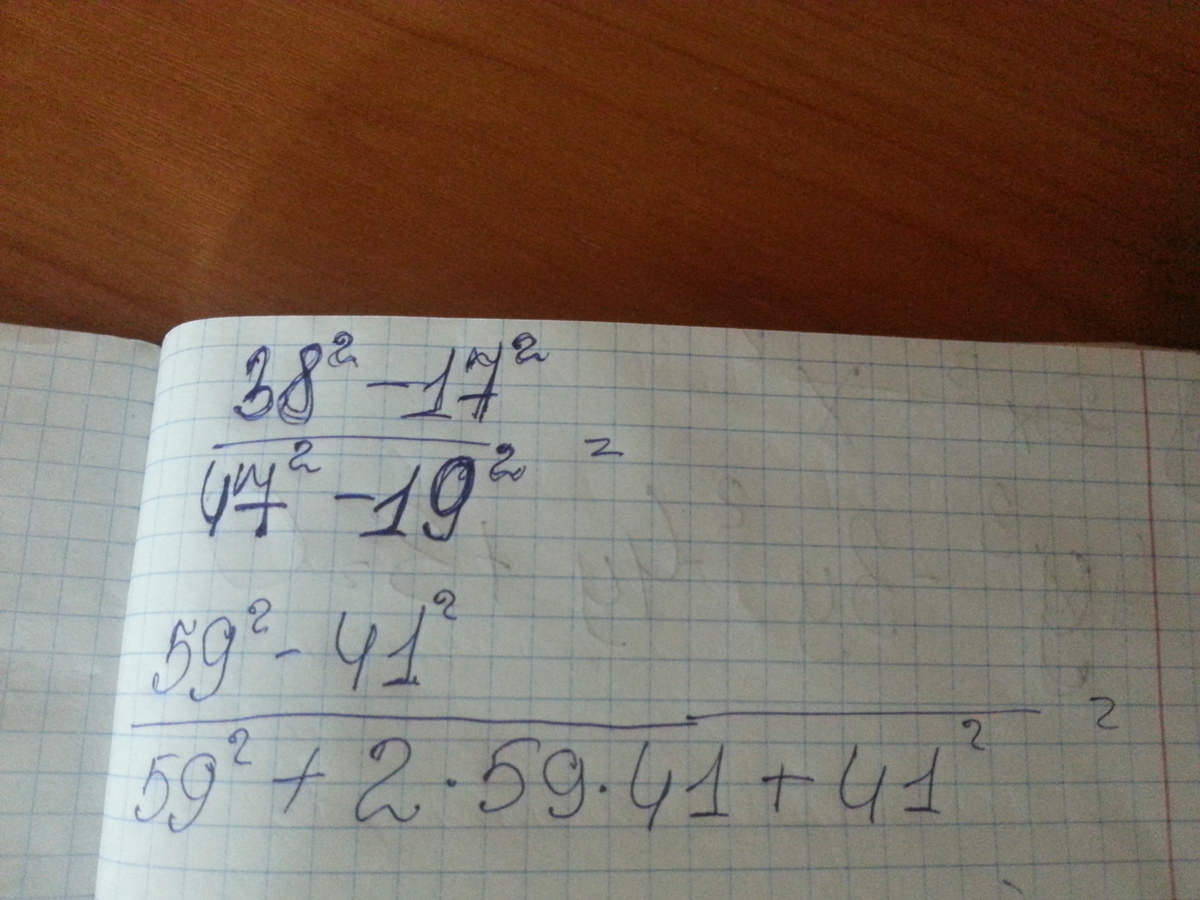 38² - 17²
47² - 19² =
59² - 41²
59² + 2 · 59 · 41 + 41² =